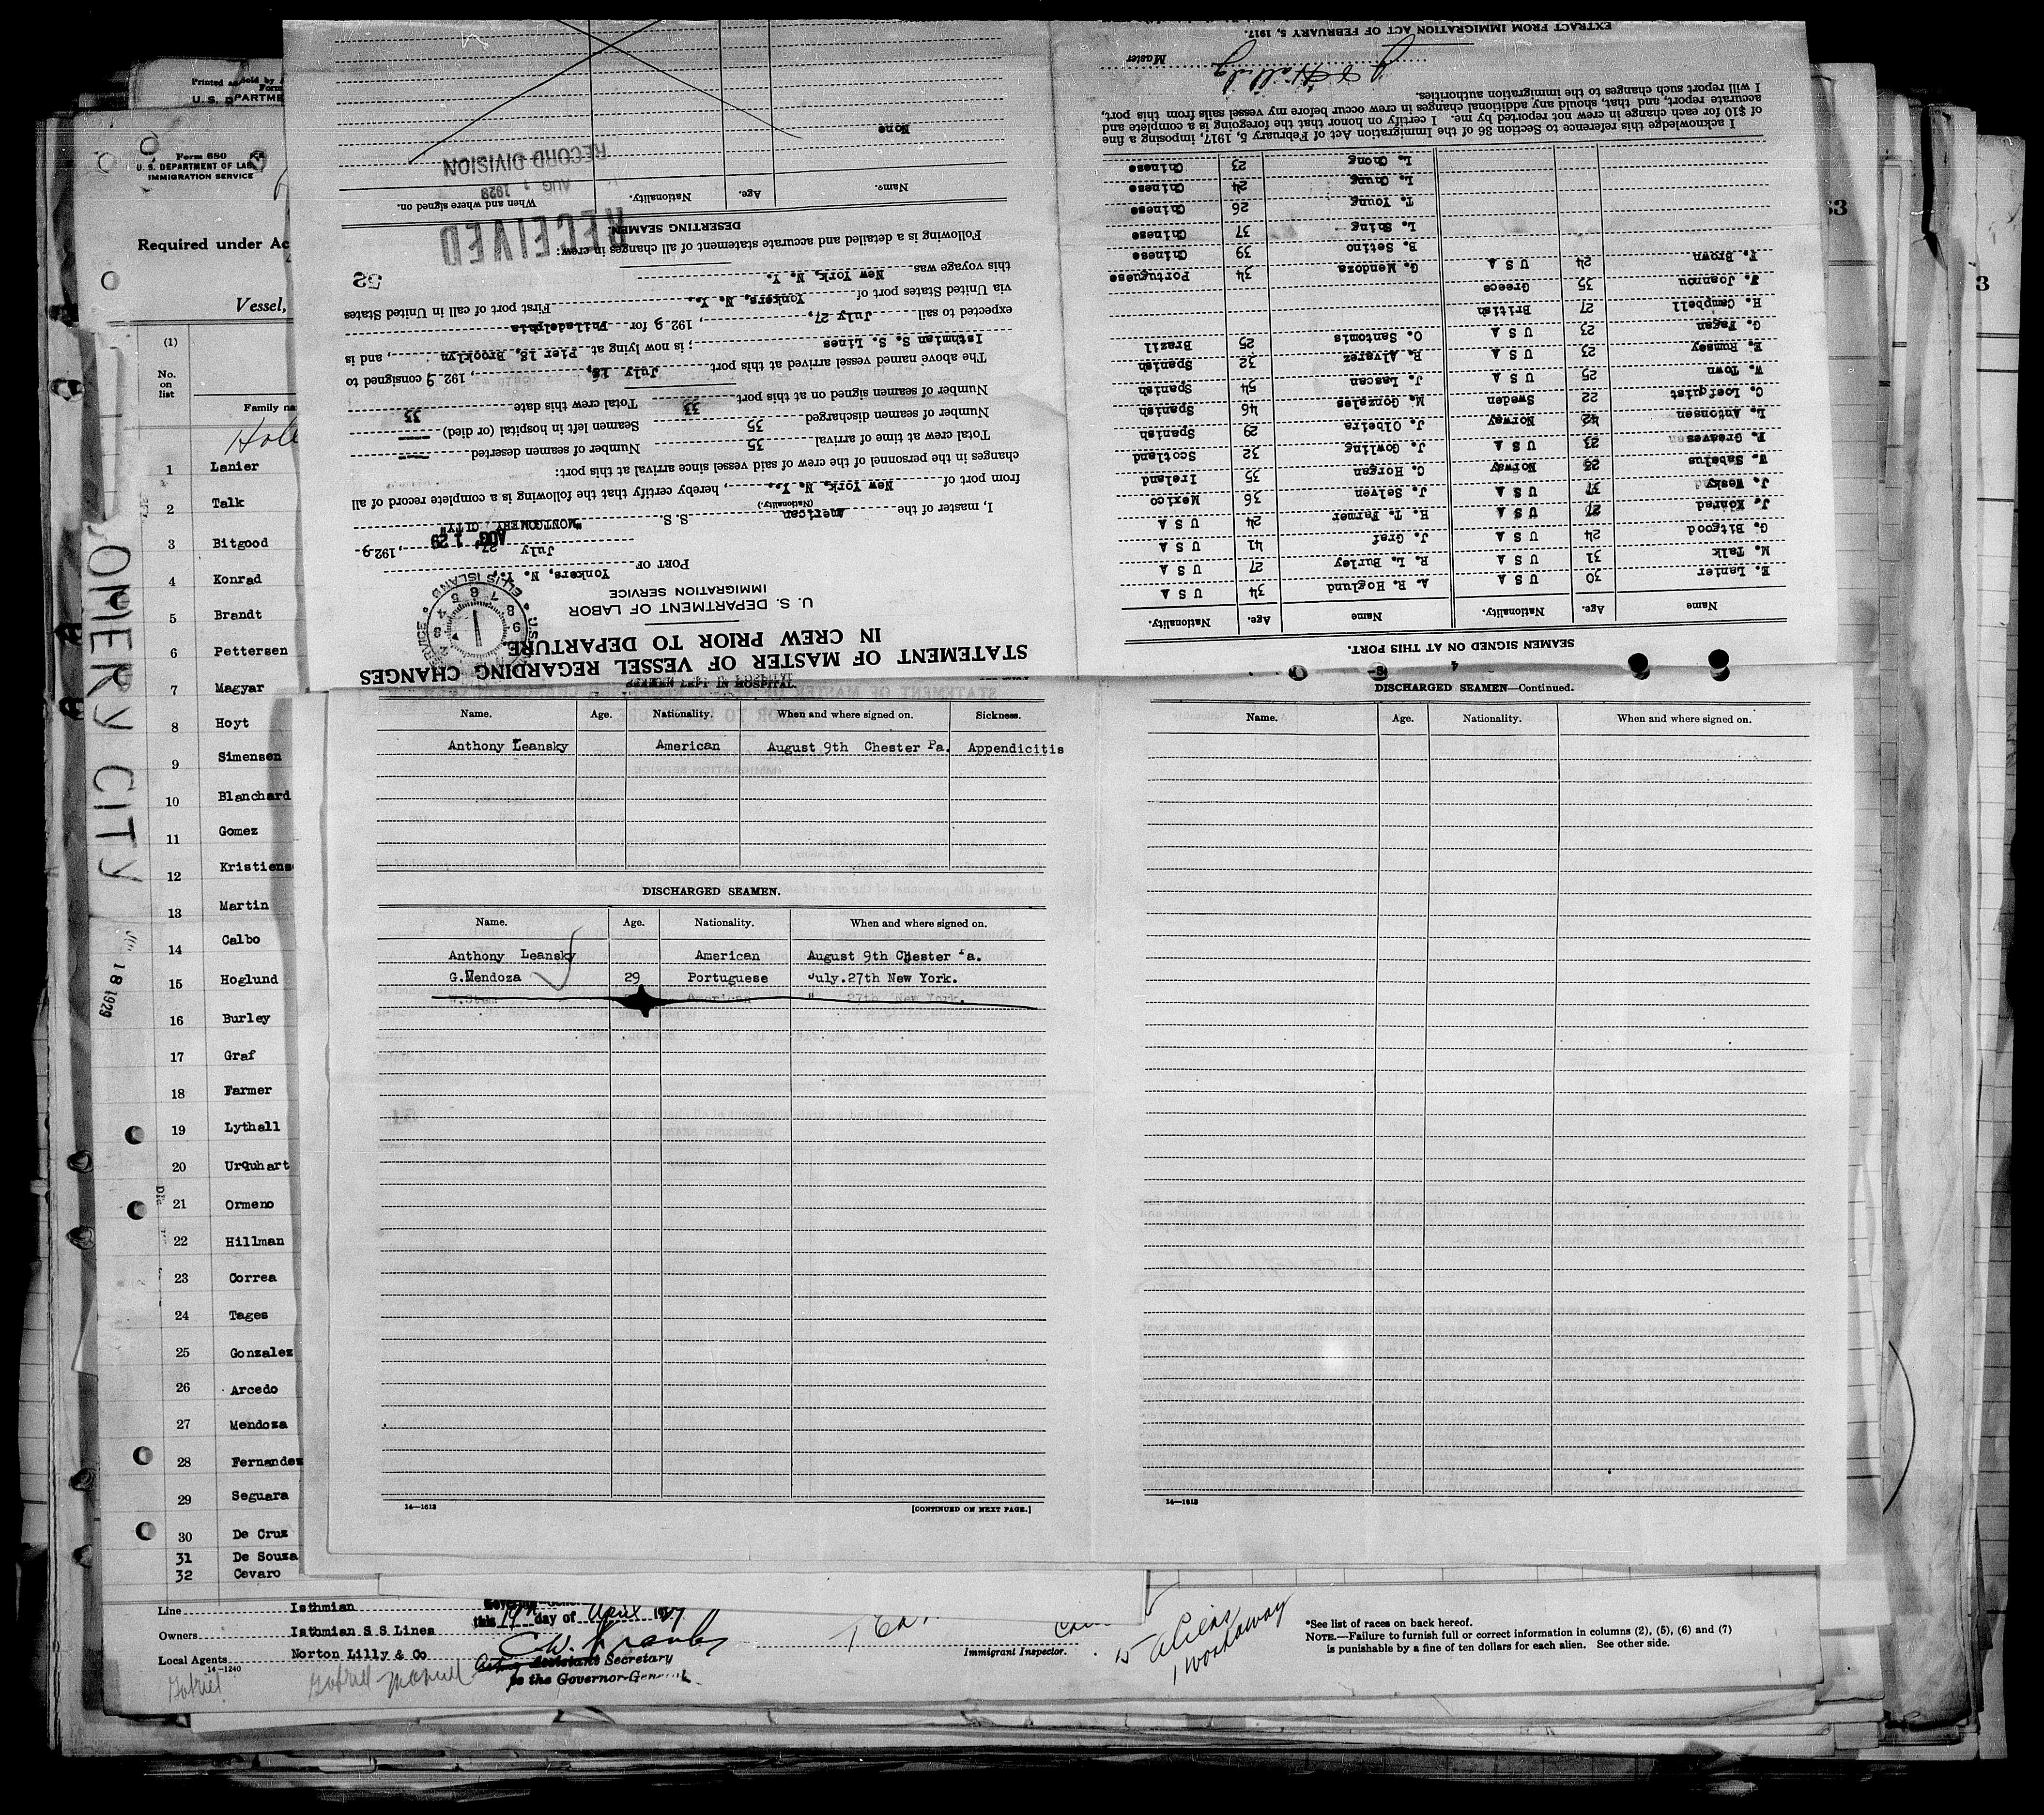 Printed and Sold by
Form
U. S. DEPARTME
Form 680
U. S. DEPARTMENT OF LAB
IMMIGRATION SERVICE
Required under Ac
Vessel,
(1)
No.
on
list
Family na
1 Lanier
2 Talk
3 Bitgood
4 Konrad
5 Brandt
6 Pettersen
7 Magyar
8 Hoyt
9 Simensen
10 Blanchard
11 Gomez
12 Kristiens
13 Martin
14 Calbo
15 Hoglund
16 Burley
17 Graf
18 Farmer
19 Lythall
20 Urquhart
21 Ormeno
22 Hillman
23 Correa
24 Tages
25 Gonzalez
26 Arcedo
27 Mendoza
28 Fernandez
29 Seguara
30 De Cruz
31 De Souza
32 Cevaro
OMERY CITY
18 1929
Line Isthmian
Owners Isthmian S S Lines
Local Agents Norton Lilly & Co
14-1240
Gabriel
Gabriel Manuel
this 19th day of April 1929
Acting Assistant Secretary
to the Governor-General
Immigrant Inspector.
15 aliens
1 workaway
*See list of races on back hereof.
NOTE.—Failure to furnish full or correct information in columns (2), (5), (6) and (7)
is punishable by a fine of ten dollars for each alien. See other side.
63
3
STATEMENT OF MASTER OF VESSEL REGARDING CHANGES
IN CREW PRIOR TO DEPARTURE.
U. S. DEPARTMENT OF LABOR
IMMIGRATION SERVICE
ELLIS ISLAND
PORT OF Yonkers, N. Y.,
July 27, 1929
AUG 1 29
I, master of the American S. S. "MONTGOMERY CITY"
(Nationality.)
from port of New York, N. Y., hereby certify that the following is a complete record of all
changes in the personnel of the crew of said vessel since arrival at this port:
Total crew at time of arrival 35 Number of seamen deserted ----
Number of seamen discharged 35 Seamen left in hospital (or died) ----
Number of seamen signed on at this port 33 Total crew this date 33
The above named vessel arrived at this port July 18, 1929 consigned to
Isthmian S. S. Lines; is now lying at Pier 18, Brooklyn, and is
expected to sail July 27, 1929 for Philadelphia
via United States port of Yonkers, N. Y., First port of call in United States
this voyage was New York, N. Y.
52
Following is a detailed and accurate statement of all changes in crew:
RECEIVED
AUG 1 1929
RECORD DIVISION
DESERTING SEAMEN
Name. Age. Nationality. When and where signed on.
None
SEAMEN SIGNED ON AT THIS PORT.
Name Age. Nationality. Name Age. Nationality.
E. Lanier 30 U S A A. R. Hoglund 34 U S A
M. Talk 31 U S A R. L. Burley 27 U S A
G. Bitgood 24 U S A J. Graf 41 U S A
J. Konrad 27 U S A H. T. Farmer 24 U S A
J. Wesky 37 U S A J. Selven 36 Mexico
W. Sabelus 25 Norway C. Horgan 35 Ireland
F. Greaves 23 U S A J. Gowling 32 Scotland
L. Antonsen 42 Norway J. Olbeira 29 Spanish
C. Loefquist 22 Sweden M. Gonzales 46 Spanish
W. Town 25 U S A J. Lascan 54 Spanish
E. Rumsey 23 U S A R. Alverez 32 Spanish
G. Fagan 23 U S A O. Santomis 25 Brazil
H. Campbell 27 British
J. Joannou 35 Greece
F. Brown 24 U S A G. Mendoza 34 Portuguese
B. Setino 39 Chinese
L. Shing 37 Chinese
T. Young 26 Chinese
L. Chung 24 Chinese
L. Chong 23 Chinese
I acknowledge this reference to Section 36 of the Immigration Act of February 5, 1917, imposing a fine
of $10 for each change in crew not reported by me. I certify on honor that the foregoing is a complete and
accurate report, and that, should any additional changes in crew occur before my vessel sails from this port,
I will report such changes to the immigration authorities.
Master
EXTRACT FROM IMMIGRATION ACT OF FEBRUARY 5, 1917.
SEAMEN LEFT IN HOSPITAL.
Name. Age. Nationality. When and where signed on. Sickness.
Anthony Leansky American August 9th Chester Pa. Appendicitis
DISCHARGED SEAMEN.
Name. Age. Nationality. When and where signed on.
Anthony Leansky American August 9th Chester Pa.
G.Mendoza 29 Portuguese July.27th New York.
W.Stem American " 27th New York.
14—1613
[CONTINUED ON NEXT PAGE.]
DISCHARGED SEAMEN—Continued.
Name. Age. Nationality. When and where signed on.
14—1613